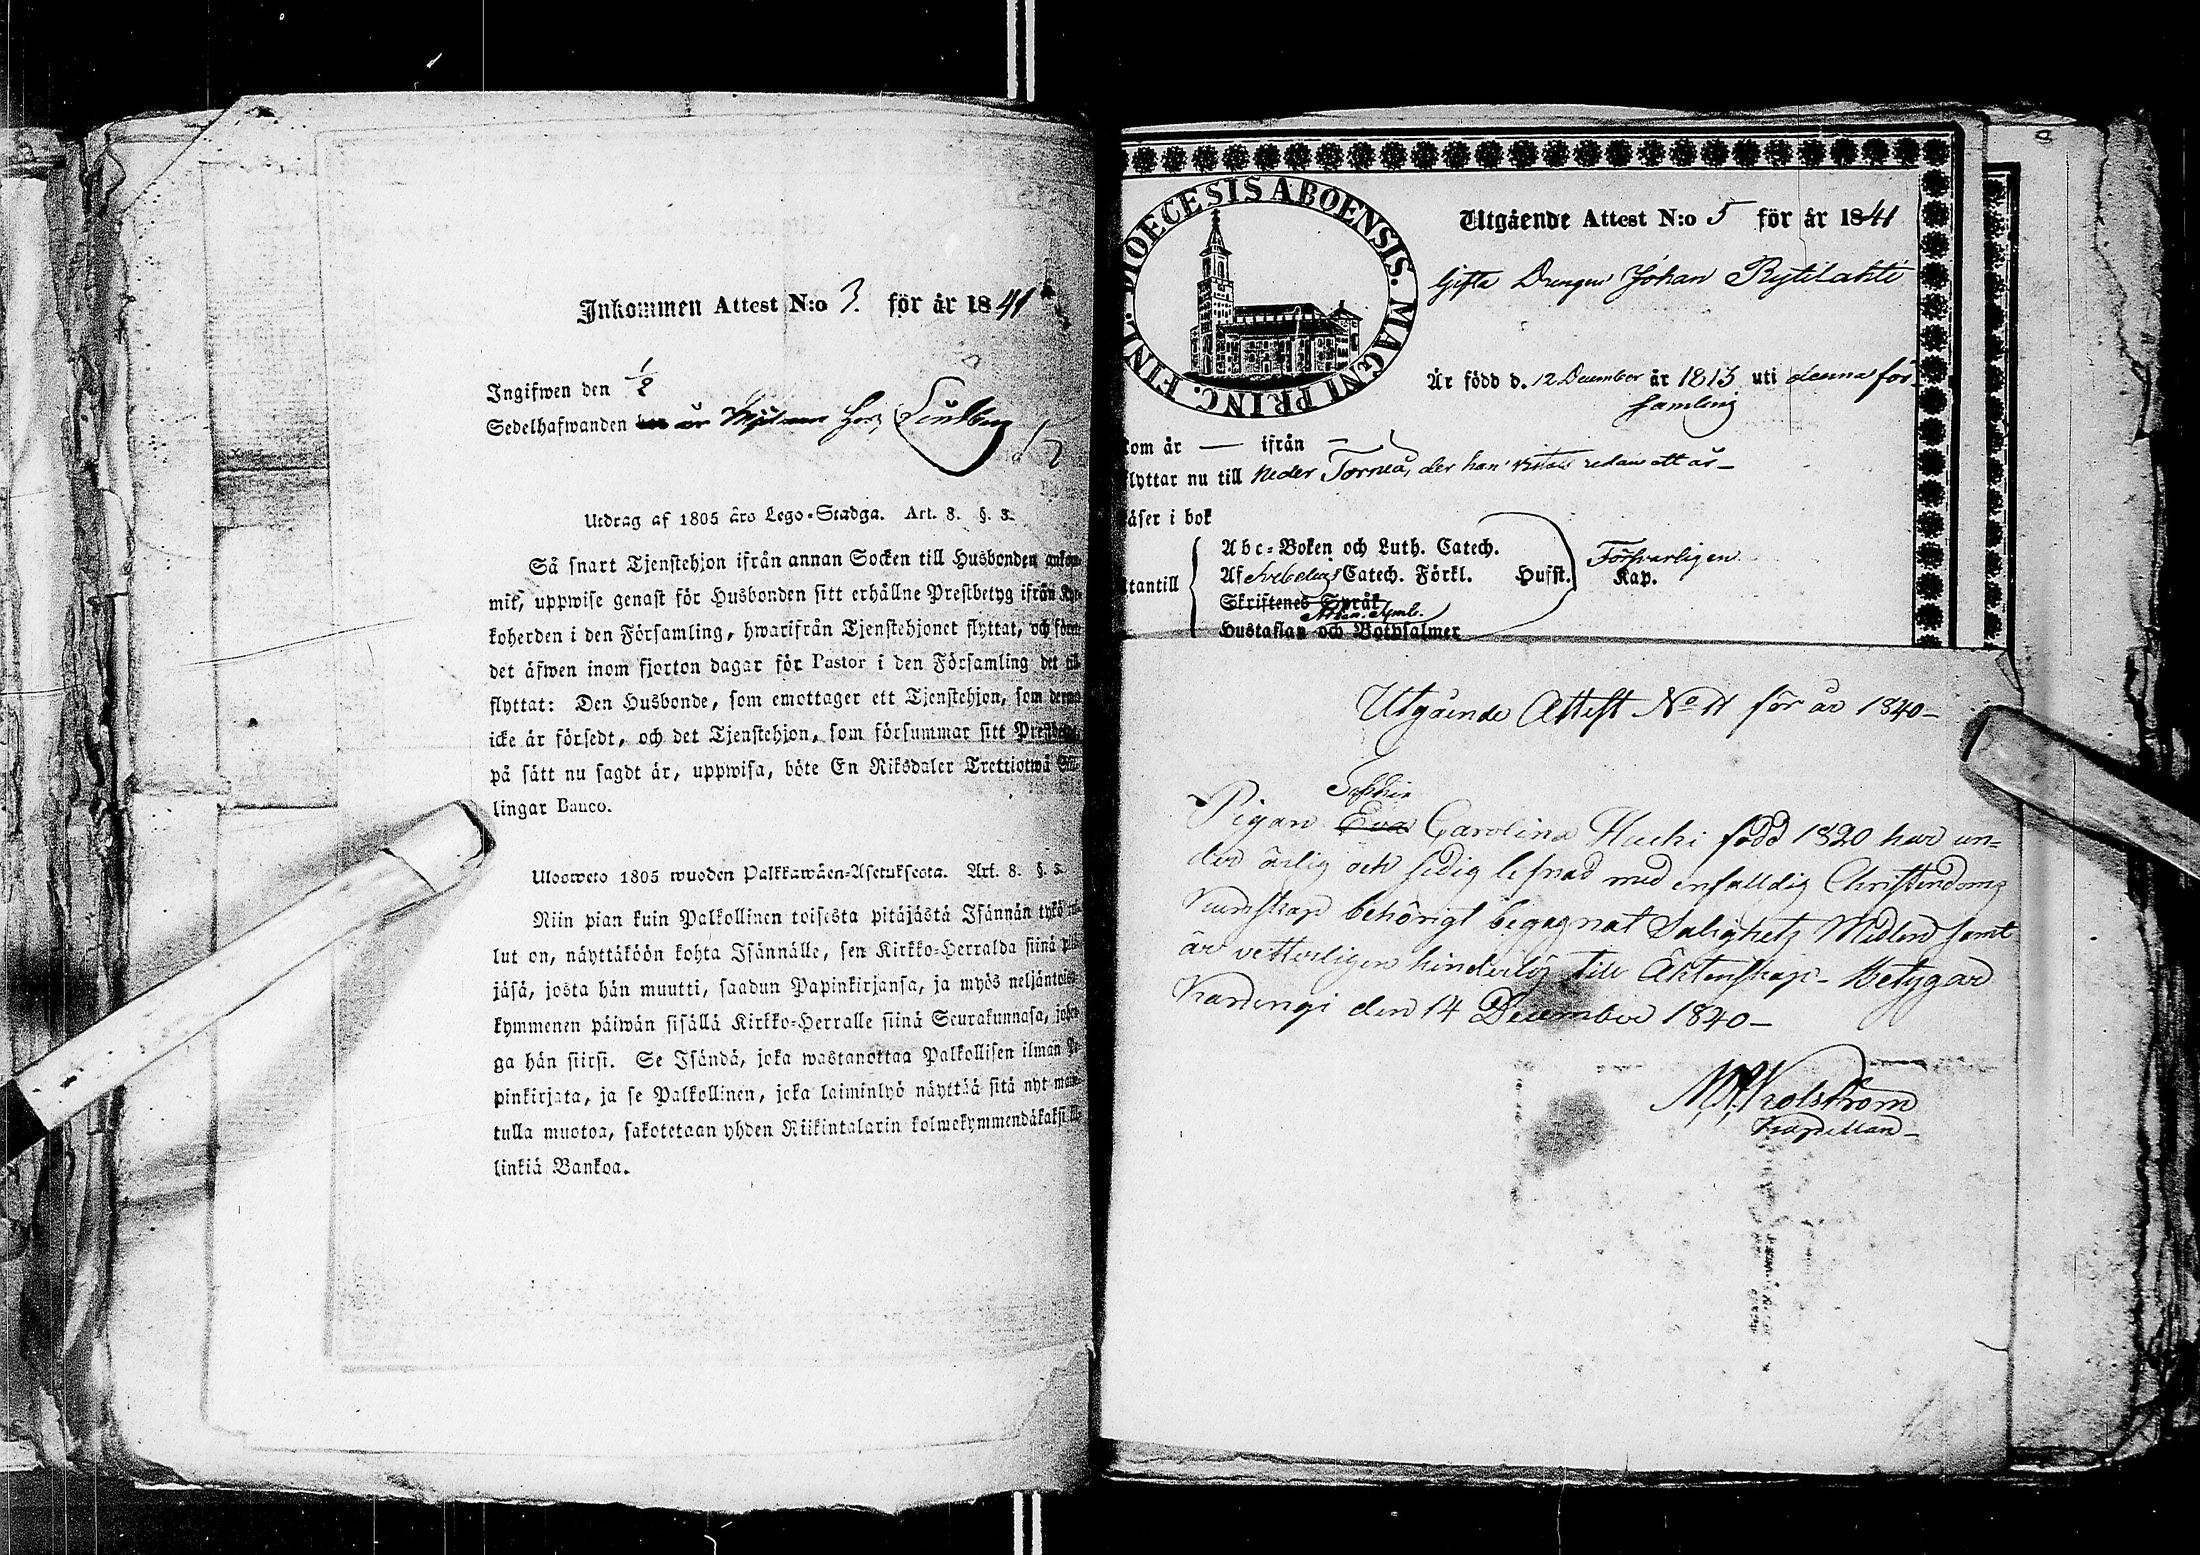 Inkommen Attest N:o 3. för år 1841
Ingifwen den 1/2
Sedelhafwanden
Utdrag af 1805 års Lego-Stadga. Art. 8. §. 3.
Så snart Tjenstehjon ifrån annan Socken till Husbonden ankom-
mit, uppwise genast för Husbonden sitt erhållne Prestbetyg ifrån Kyr-
koherden i den Församling, hwarifrån Tjenstehjonet flyttat, och
det äfwen inom fjorton dagar för Pastor i den Församling det till
flyttat: Den Husbonde, som emottager ett Tjenstehjon, som dermed
icke är försedt, och det Tjenstehjon, som försummar sitt Prestbetyg,
på sätt nu sagdt är, uppwisa, böte En Riksdaler Trettiotwå Skil-
lingar Banco.
Ulosweto 1805 wuoden Palkkawäen-Asetuksesta. Art. 8. §. 3.
Niin pian kuin Palkollinen toisesta pitäjästä Isännän tykö tul-
lut on, näyttäköön kohta Isännälle, sen Kirkko-Herralda siinä pitä-
jäsä, josta hän muutti, saadun Papinkirjansa, ja myös neljäntoista-
kymmenen päiwän sisällä Kirkko-Herralle siinä Seurakunnasa, johon-
ga hän siirsi. Se Isändä, joka wastanottaa Palkollisen ilman Pa-
pinkirjata, ja se Palkollinen, joka laiminlyö näyttää sitä nyt maini-
tulla muotoa, sakotetaan yhden Riikintalarin kolmekymmendäkaksi kil-
linkiä Bankoa.
DIOECESIS ABOENSIS. MAGNI PRINC. FINL.
Utgående Attest N:o 5 för år 1841
Gifta Drengen Johan Rytilahti
Är född d. 12 December år 1813 uti denna för-
samling
kom år — ifrån —
flyttar nu till Neder Torneå, der han vistats redan ett år—
Läser i bok
utantill
Abc-Boken och Luth. Catech.
Af Svebelius Catech. Förkl. Husst. Kap.
Försvarligen
Skriftenes Språk
Athan. Symb.
Hustaflan och Botpsalmer
Utgående Attest No 11 för år 1840—
Sophia
Pigan Eva Carolina Huchi född 1820 har un=
der ärlig och sedig lefnad med enfalldig Christendoms
Kundskap behörigt begagnat Salighetz Medlen samt
är vetterligen hinderlös till Äktenskap— Betygar
Karungi den 14 December 1840—
Kapellan—